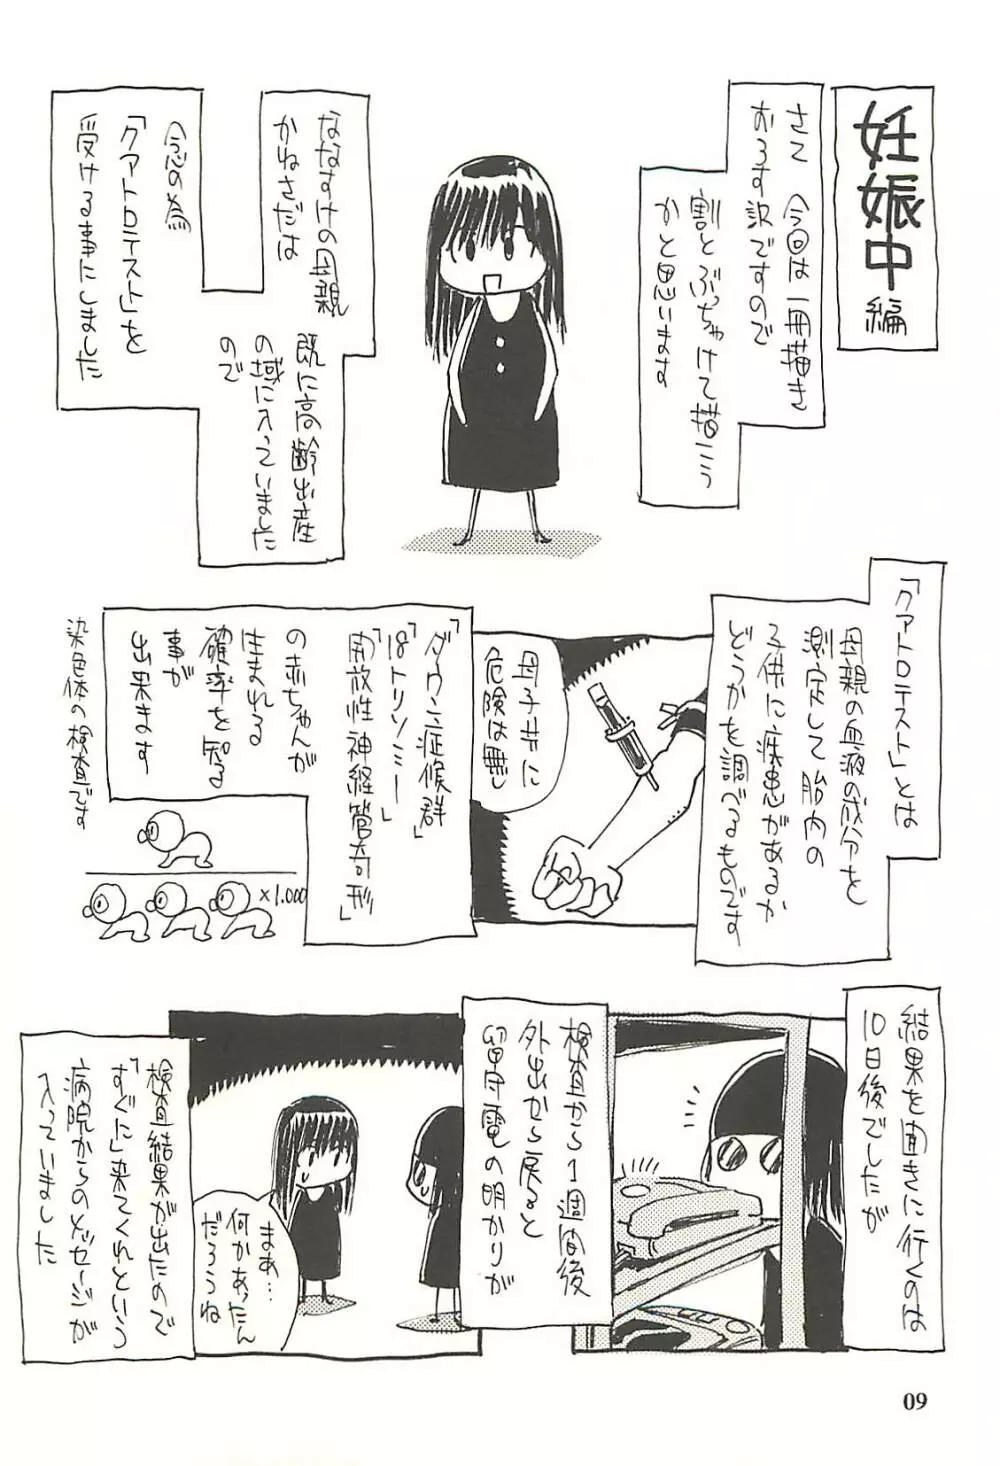 妊娠中
編
さて 今回は一冊描き
おろす訳ですので
割とぶっちゃけて描こう
かと思います
ななすけの母親
かねさだは
既に高齢出産
の域に入っていました
ので
念の為
「クアトロテスト」を
受ける事にしました
「クアトロテスト」とは
母親の血液の成分を
測定して胎内の
子供に疾患があるか
どうかを調べるものです
母子共に
危険は無し
「ダウン症候群」
「18トリソミー」
「開放性神経管奇形」
の赤ちゃんが
生まれる
確率を知る
事が
出来ます
染色体の検査です
×1,000
結果を聞きに行くのは
10日後でしたが
検査から1週間後
外出から戻ると
留守電の明かりが
検査結果が出たので
「すぐに」来てくれという
病院からのメッセージが
入っていました
まあ…
何かあったん
だろうね
09